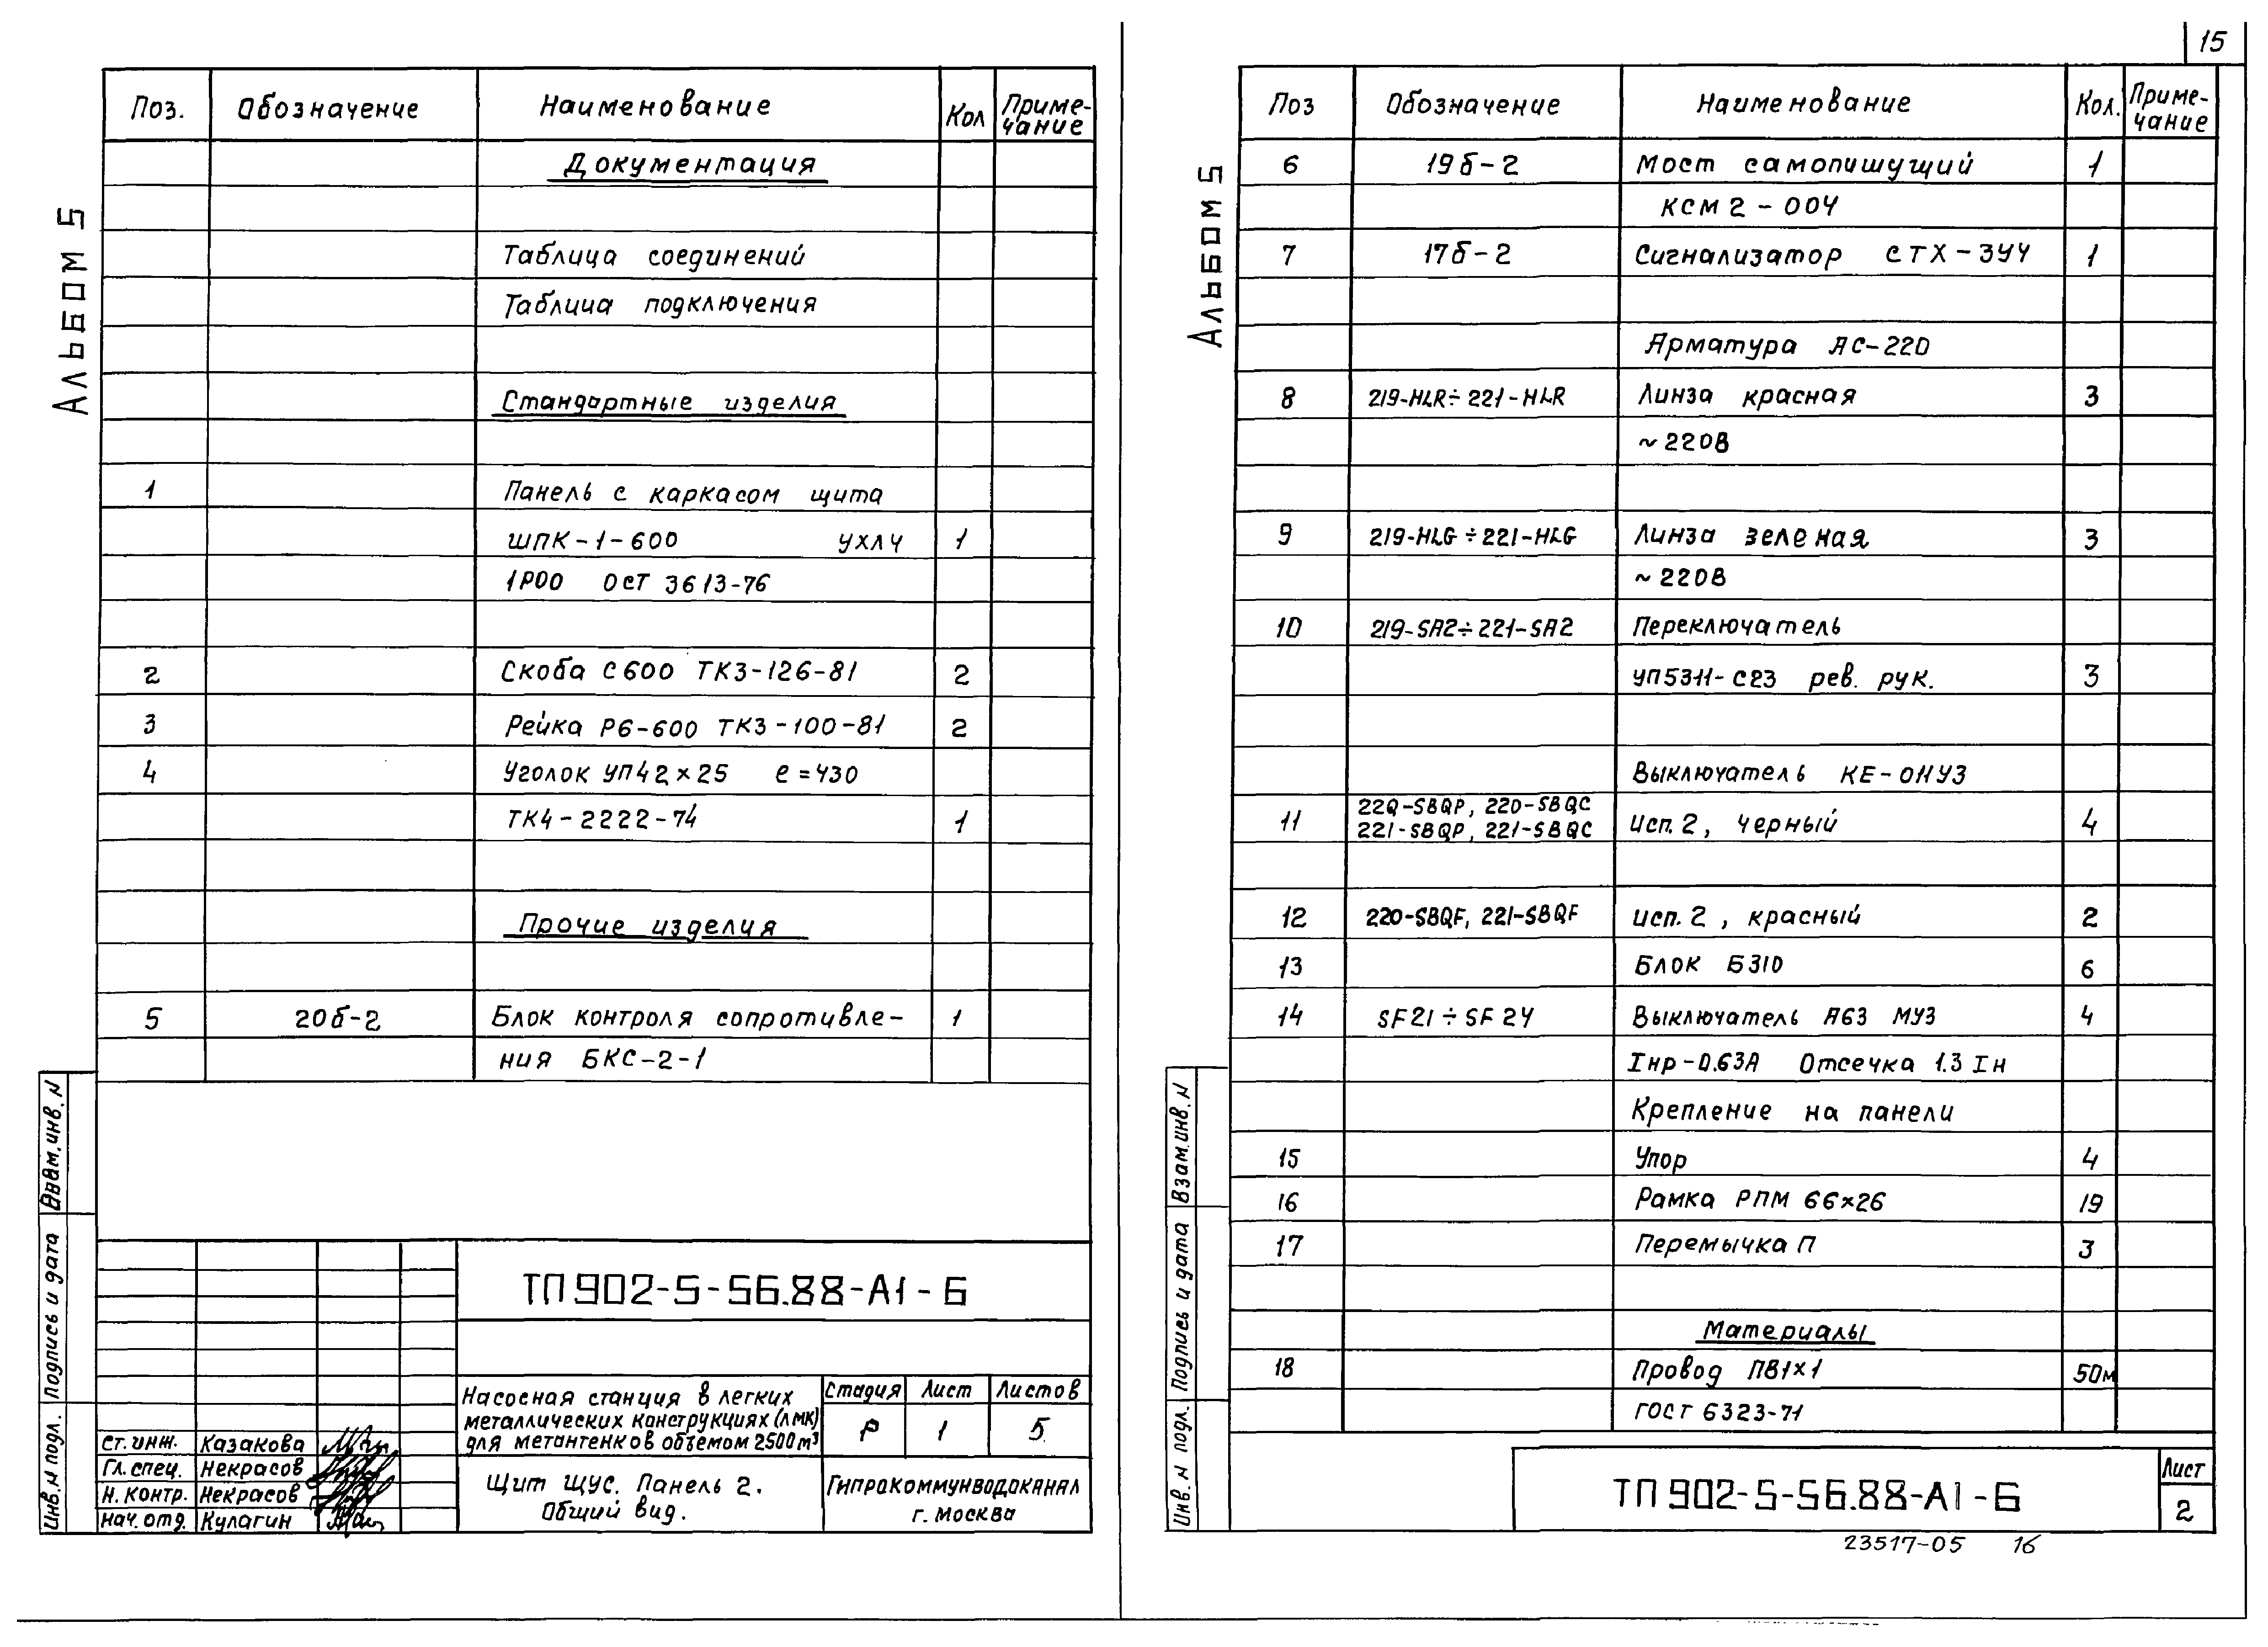 15
Альбом 5
Поз. Обозначение Наименование Кол Приме-
чание
Документация
Таблица соединений
Таблица подключения
Стандартные изделия
1 Панель с каркасом щита
ШПК-1-600 УХЛ4 1
1Р00 ОСТ 3613-76
2 Скоба С600 ТК3-126-81 2
3 Рейка Р6-600 ТК3-100-81 2
4 Уголок УП42×25 ℓ=430
ТК4-2222-74 1
Прочие изделия
5 20б-2 Блок контроля сопротивле- 1
ния БКС-2-1
Взам. инв. N
Подпись и дата
Инв. N подл.
ТП 902-5-56.88-А1-Б
Насосная станция в легких
металлических конструкциях (ЛМК)
для метантенков объемом 2500м³
Стадия Лист Листов
Р 1 5
Ст. инж. Казакова
Гл. спец. Некрасов
Н. контр. Некрасов
Нач. отд. Кулагин
Щит ЩУС. Панель 2.
Общий вид.
Гипрокоммунводоканал
г. Москва
Альбом 5
Поз Обозначение Наименование Кол. Приме-
чание
6 19б-2 Мост самопишущий 1
КСМ2-004
7 17б-2 Сигнализатор СТХ-3У4 1
Арматура АС-220
8 219-HLR÷221-HLR Линза красная 3
~220В
9 219-HLG÷221-HLG Линза зеленая 3
~220В
10 219-SA2÷221-SA2 Переключатель
УП5311-С23 рев. рук. 3
Выключатель КЕ-011У3
220-SBQP, 220-SBQC
11 221-SBQP, 221-SBQC исп. 2, черный 4
12 220-SBQF, 221-SBQF исп. 2, красный 2
13 Блок Б310 6
14 SF21÷SF24 Выключатель А63 МУ3 4
Iнр-0.63А Отсечка 1.3 Iн
Крепление на панели
15 Упор 4
16 Рамка РПМ 66×26 19
17 Перемычка П 3
Материалы
18 Провод ПВ1×1 50м
ГОСТ 6323-71
Взам. инв. N
Подпись и дата
Инв. N подл.
ТП 902-5-56.88-А1-Б
Лист
2
23517-05 16